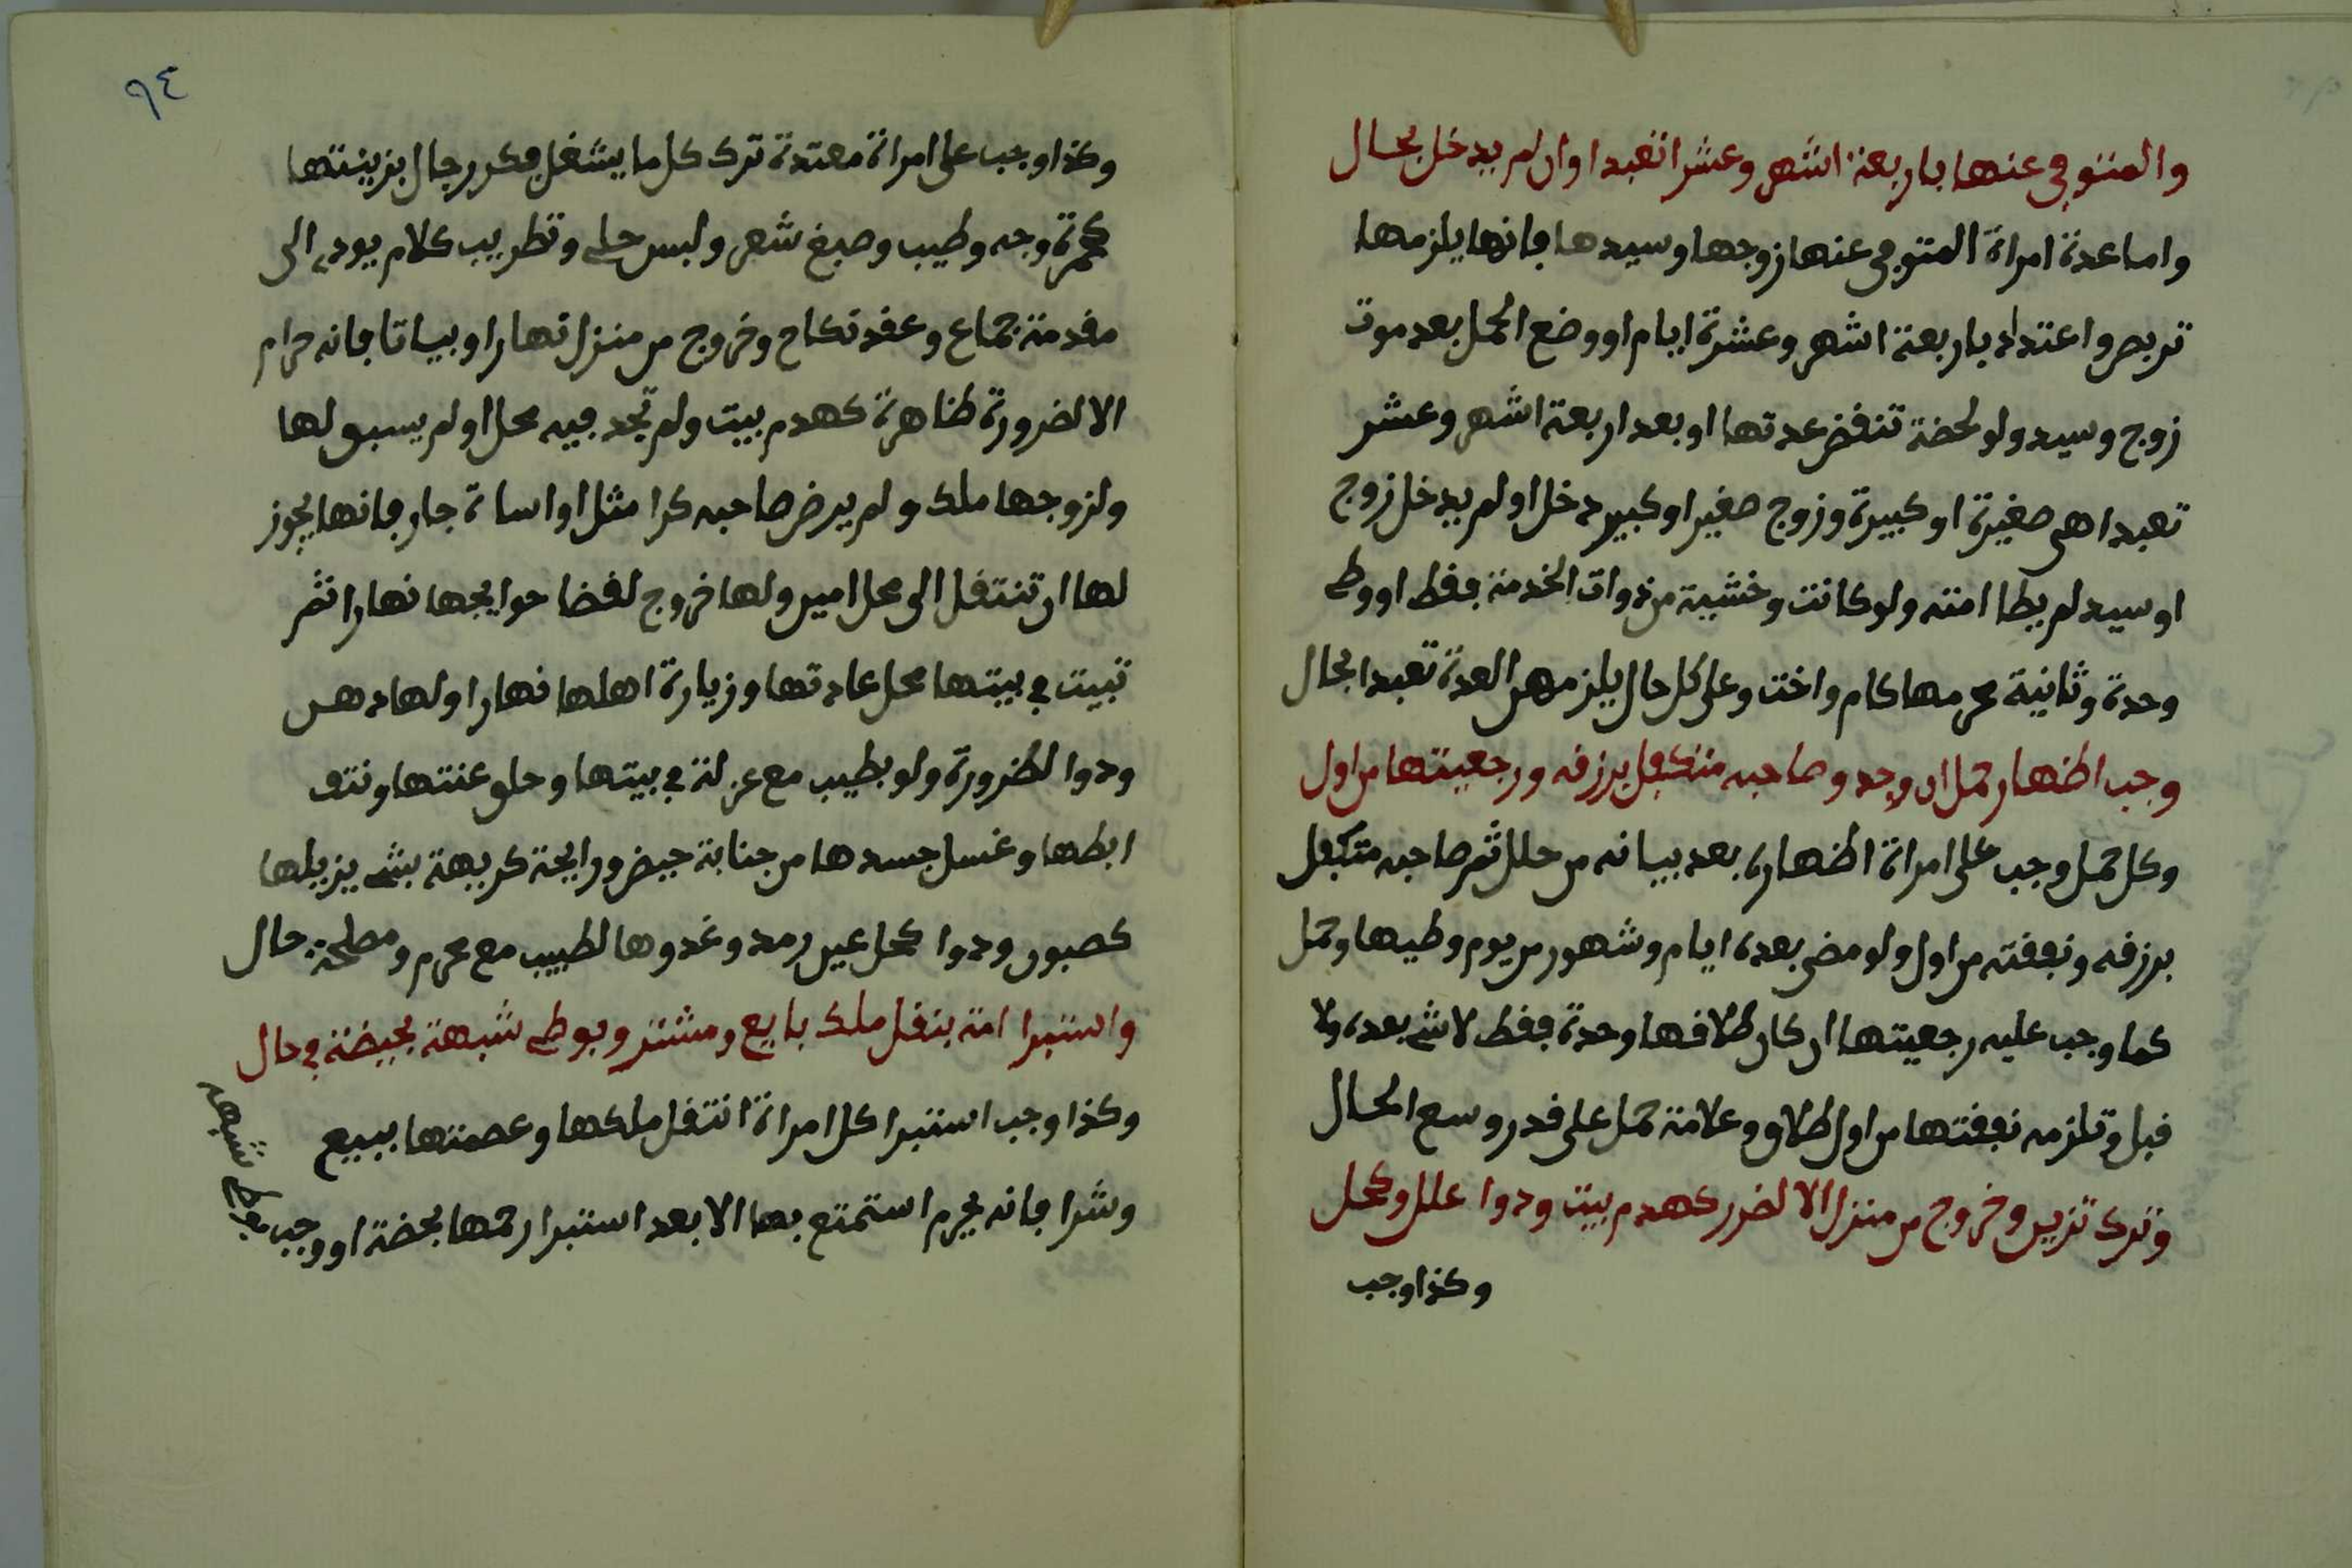 والمتوفى عنها باربعة اشهر وعشرا تعبدا وان لم يدخل بحال
واما عدة امراة المتوفى عنها زوجها وسيدها فانها يلزمها
تربص واعتداد باربعة اشهر وعشرة ايام او وضع الحمل بعد موت
زوج وسيد ولو لحضة تنقض عدتها او بعد اربعة اشهر وعشر
تعبدا هى صغيرة او كبيرة وزوج صغير او كبير دخل او لم يدخل زوج
او سيد لم يطا امته ولو كانت وخشية من ذوات الخدمة فقط او وطى
وحدة وثانية محرمها كام واخت وعلى كل حال يلزمهن العدة تعبدا بحال
وجب اظهار حمل ان وجد وصاحبه متكفل برزقه ورجعيتها من اول
وكل حمل وجب على امراة اظهاره بعد بيانه من حلل ثم صاحبه متكفل
برزقه ونفقته من اول ولو مضى بعده ايام وشهور من يوم وطيها وحمل
كما وجب عليه رجعيتها ان كان طلاقها وحدة فقط لا شى بعده ولا
قبل وتلزمه نفقتها من اول طلاق وعلامة حمل على قدر وسع الحال
وترك تزين وخروج من منزل الا لضرر كهدم بيت ودوا علل وكحل
وكذا وجب
٩٤
وكذا وجب على امراة معتدة ترك كل ما يشغل فكر رجال بزينتها
كحمرة وجه وطيب وصبغ شعر ولبس حلى وتطريب كلام يودى الى
مقدمة جماع وعقد نكاح وخروج من منزل نهارا وبياتا فانه حرام
الا لضرورة ظاهرة كهدم بيت ولم تجد فيه محل او لم يسبق لها
ولزوجها ملك ولم يرض صاحبه كرا مثل او اساة جار فانها يجوز
لها ان تنتقل الى محل امين ولها خروج لقضا حوايجها نهارا ثم
تبيت فى بيتها محل عادتها وزيارة اهلها نهارا ولها دهن
ودوا لضرورة ولو بطيب مع عزلة فى بيتها وحلق عنتها ونتف
ابطها وغسل جسدها من جنابة حيض ورايحة كريهة بشى يزيلها
كصبون ودوا كحل عين رمد وغدوها لطبيب مع محرم ومصلحة حال
واستبرا امة بنقل ملك بايع ومشتر وبوطى شبهة بحيضة فى حال
وكذا وجب استبرا كل امراة انتقل ملكها وعصمتها ببيع
وشرا فانه يحرم استمتع بها الا بعد استبرا رحمها بحضة او وجب بوطى شبهه